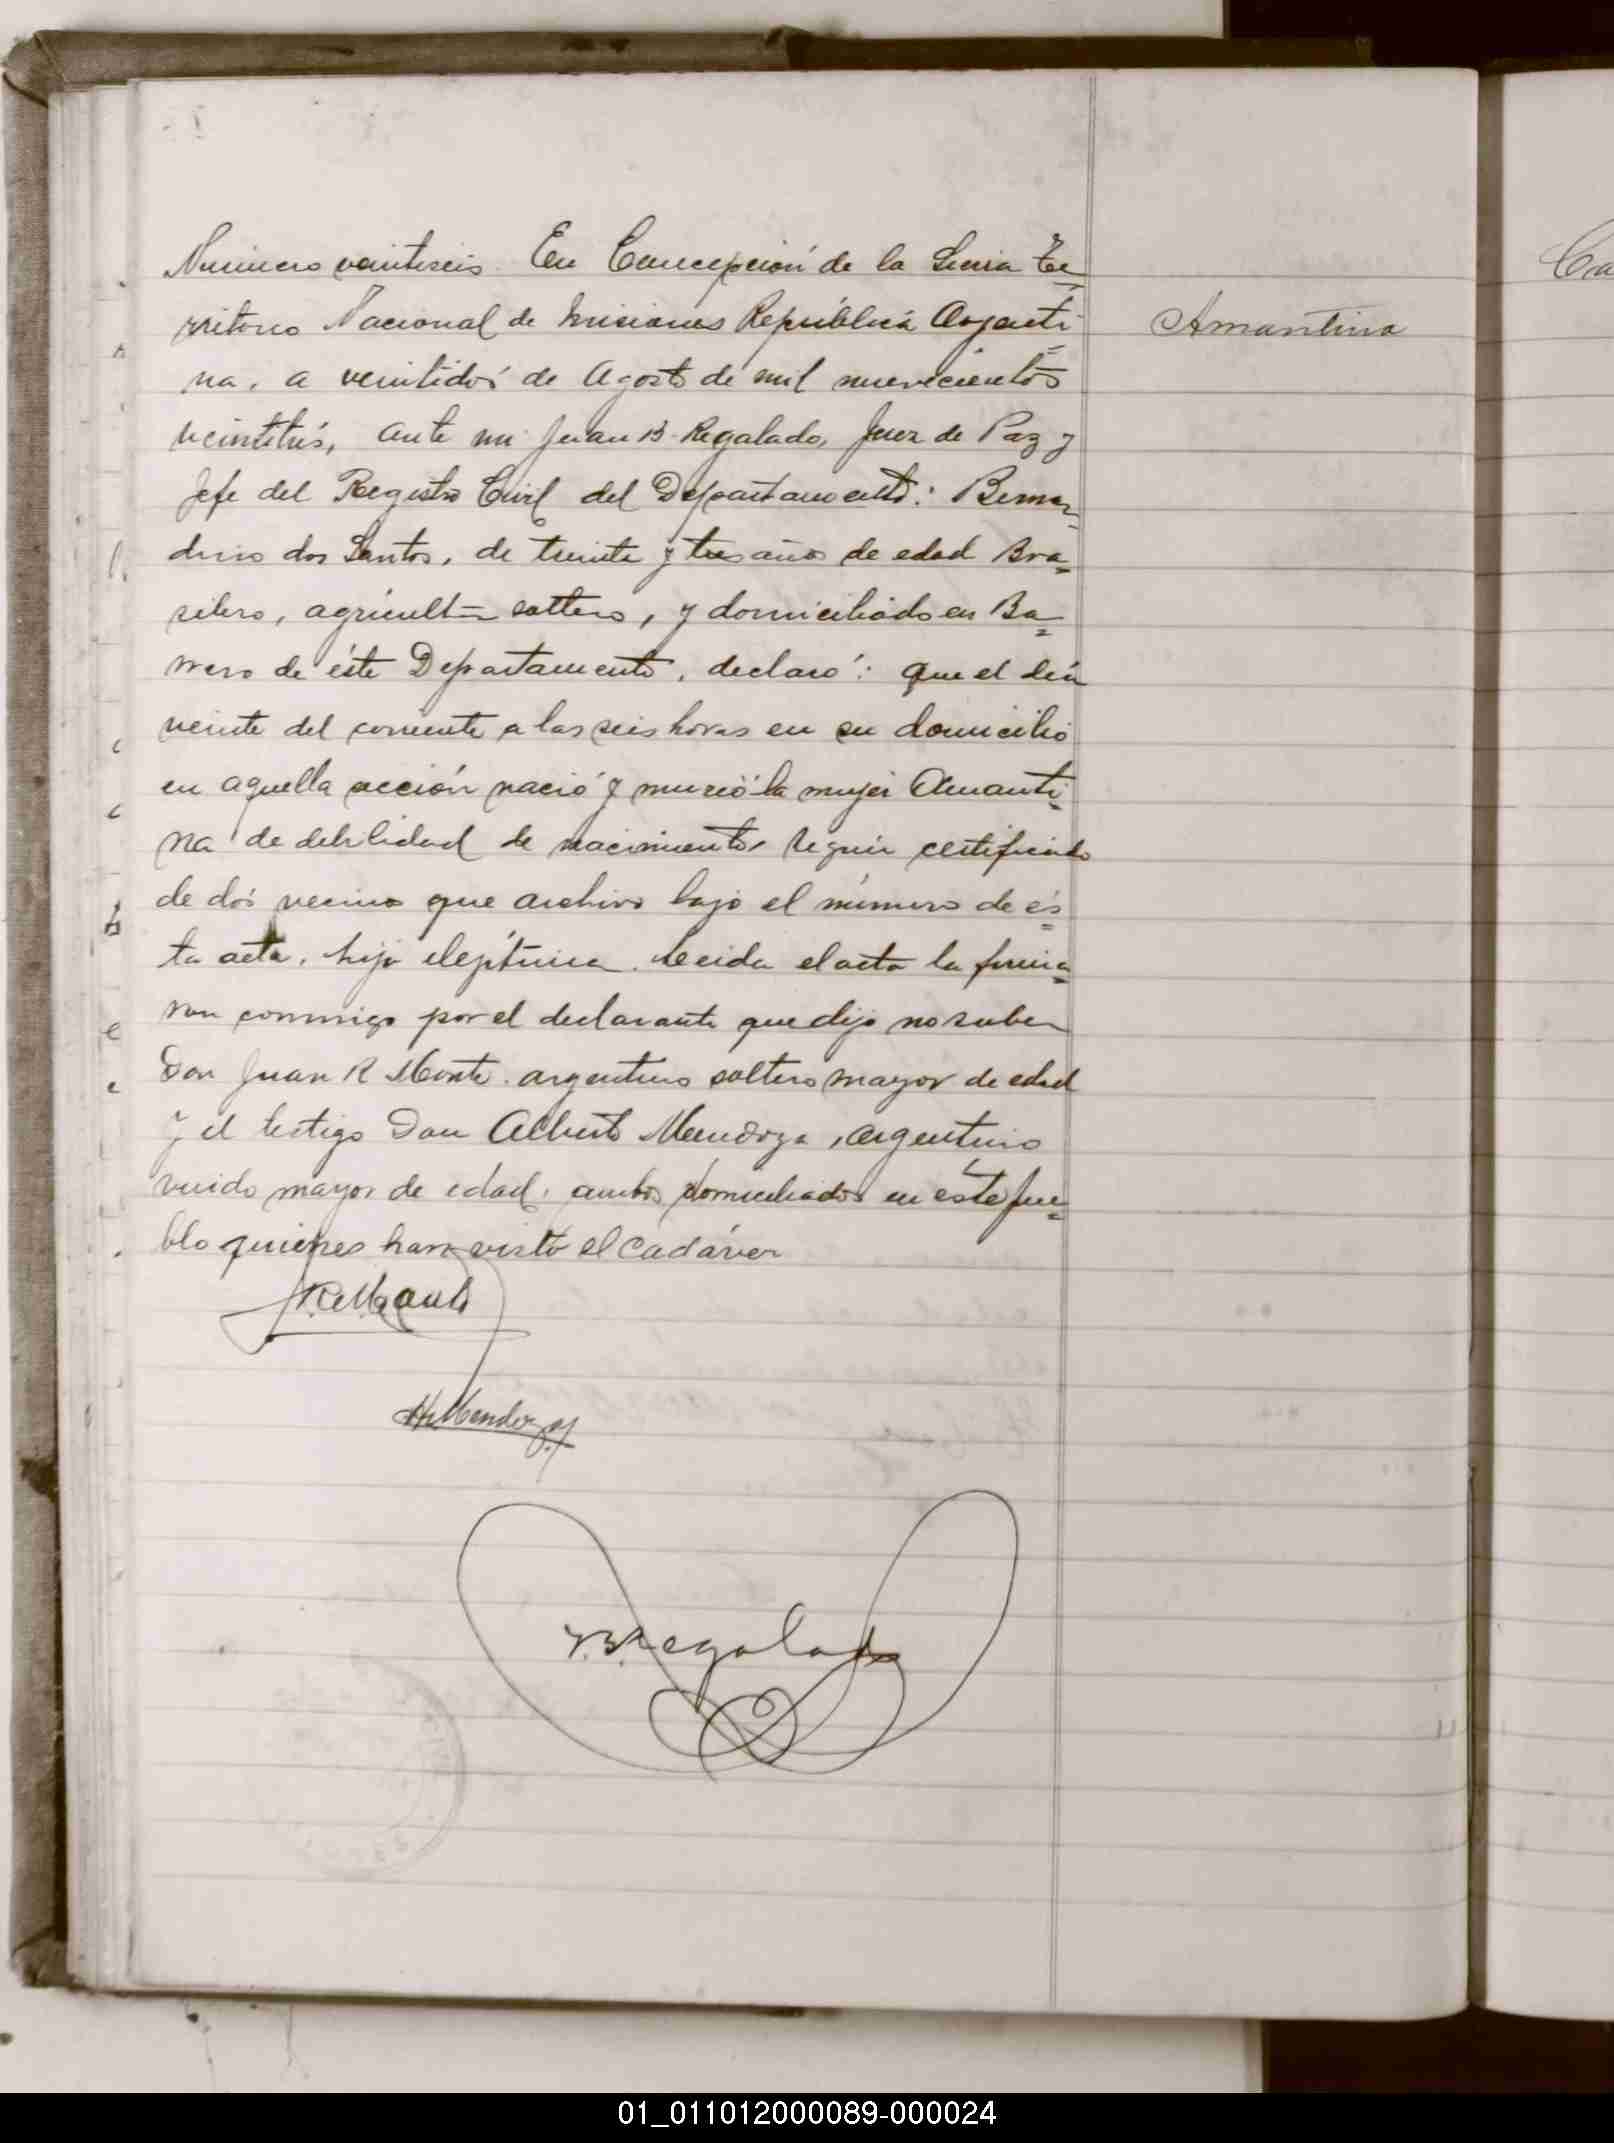 Numero veintiseis. En Concepción de la Sierra Te=
rritorio Nacional de Misiones República Argenti=
na, a veintidós de Agosto de mil novecientos
veintitrés, ante mi Juan B. Regalado, Juez de Paz y
Jefe del Registro Civil del Departamento: Bernar=
dino dos Santos, de treinta y tres años de edad Bra=
silero, agricultor soltero, y domiciliado en Ba=
rrero de éste Departamento, declaró: que el día
veinte del corriente a las seis horas en su domicilio
en aquella sección nació y murió la mujer Amanti=
na de debilidad de nacimiento, segun certificado
de dós vecinos que archivo bajo el número de és=
ta acta, hija ilegítima. Leida el acta la firma=
ron conmigo por el declarante que dijo no saber
Don Juan R. Monte. argentino soltero mayor de edad
y el testigo Don Alberto Mendoza, argentino
viudo mayor de edad, ambos domiciliados en este pue=
blo quienes han visto el cadáver
A. Mendoza
J. B. Regalado
Amantina
Ca
01_011012000089-000024